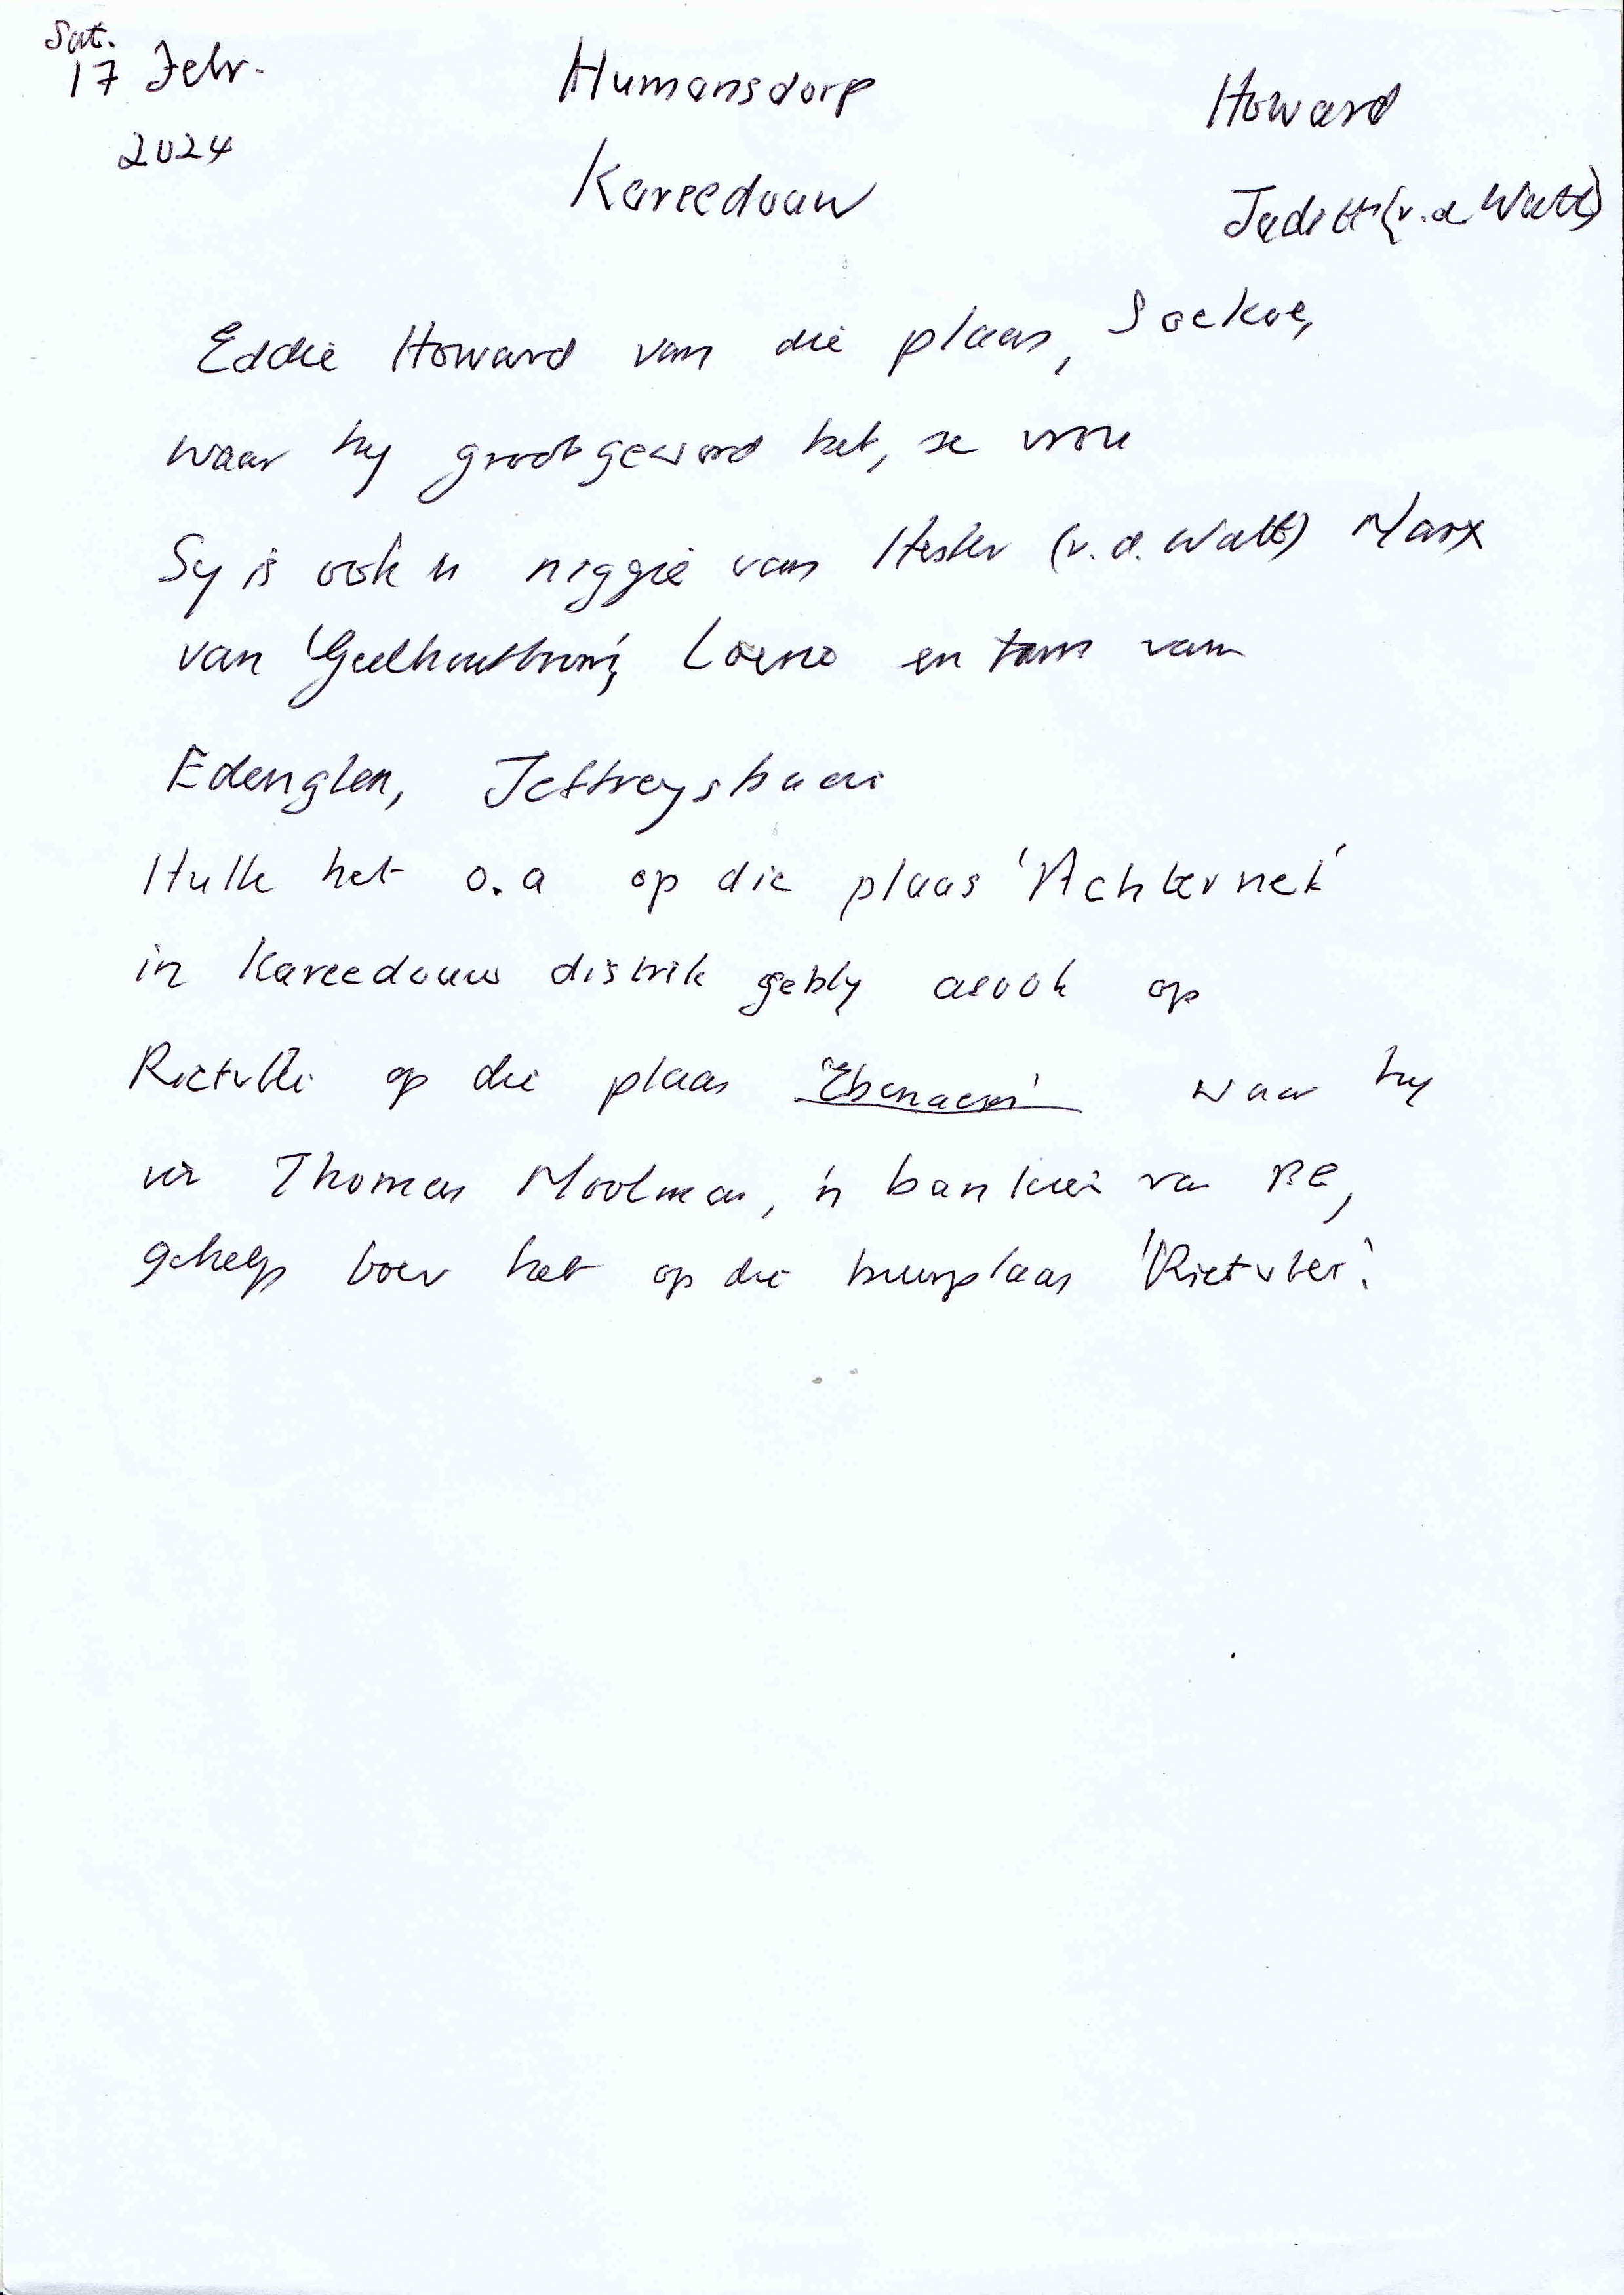 Sat.
17 Febr.
2024
Humansdorp
Kareedouw
Howard
Judith (v.d. Watt)
Eddie Howard van die plaas, Soekoe,
waar hy grootgeword het, se vrou
Sy is ook 'n niggie van Hester (v.d. Watt) Marx
van Geelhoutboom, Loerie en tans van
Edenglen, Jeffreysbaai
Hulle het o.a op die plaas 'Achternek'
in Kareedouw distrik gebly asook op
Rietvlei op die plaas 'Ebenaeser' waar hy
vir Thomas Moolman, 'n bankier van PE,
gehelp boer het op die buurplaas 'Rietvlei'.